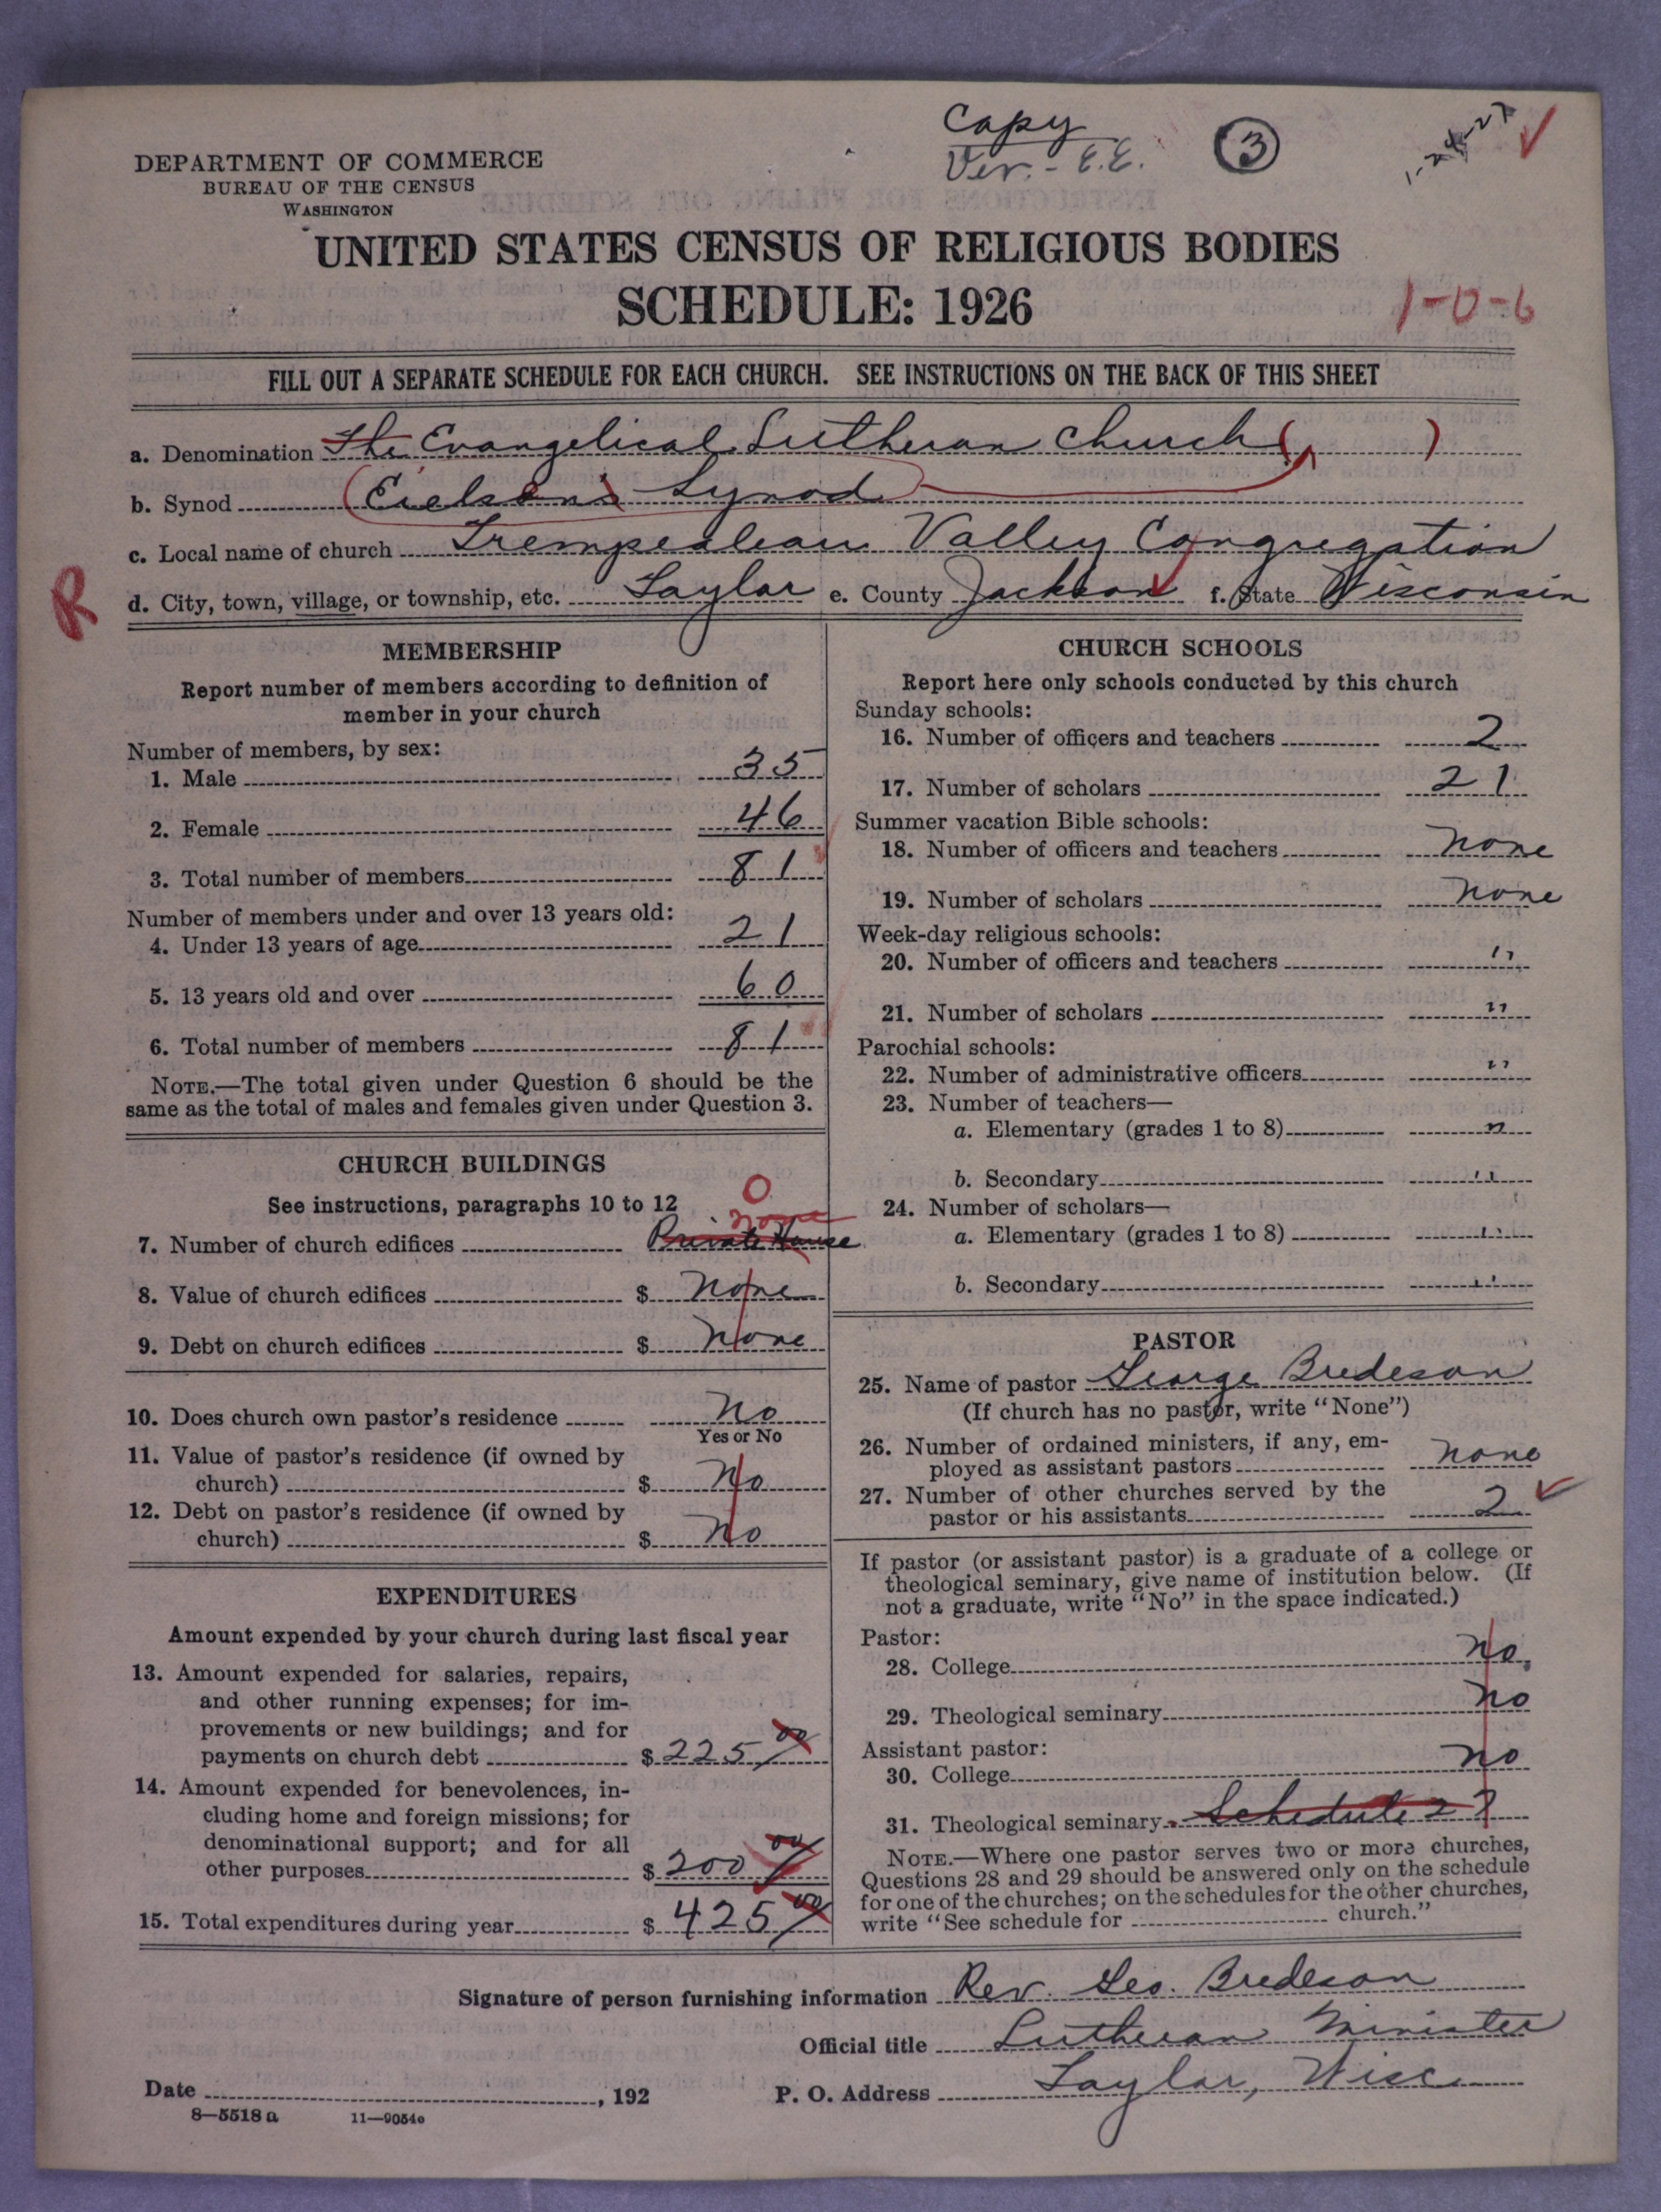 Copy
Ver. - E.E.
3
DEPARTMENT OF COMMERCE
BUREAU OF THE CENSUS
WASHINGTON
UNITED STATES CENSUS OF RELIGIOUS BODIES
SCHEDULE: 1926
1-0-6
FILL OUT A SEPARATE SCHEDULE FOR EACH CHURCH. SEE INSTRUCTIONS ON THE BACK OF THIS SHEET
a. Denomination The Evangelical Lutheran Church ( )
b. Synod (Eielsen's Synod)
c. Local name of church Trempealeau Valley Congregation
R
d. City, town, village, or township, etc. Taylor e. County Jackson f. State Wisconsin
MEMBERSHIP
Report number of members according to definition of
member in your church
Number of members, by sex:
1. Male 35
2. Female 46
3. Total number of members 81
Number of members under and over 13 years old:
4. Under 13 years of age 21
5. 13 years old and over 60
6. Total number of members 81
NOTE.—The total given under Question 6 should be the
same as the total of males and females given under Question 3.
CHURCH BUILDINGS
See instructions, paragraphs 10 to 12
0
none
7. Number of church edifices Private House
8. Value of church edifices $ None
9. Debt on church edifices $ None
10. Does church own pastor's residence No
Yes or No
11. Value of pastor's residence (if owned by
church) $ No
12. Debt on pastor's residence (if owned by
church) $ No
EXPENDITURES
Amount expended by your church during last fiscal year
13. Amount expended for salaries, repairs,
and other running expenses; for im-
provements or new buildings; and for
payments on church debt $ 225 00
14. Amount expended for benevolences, in-
cluding home and foreign missions; for
denominational support; and for all
other purposes $ 200 00
15. Total expenditures during year $ 425 00
CHURCH SCHOOLS
Report here only schools conducted by this church
Sunday schools:
16. Number of officers and teachers 2
17. Number of scholars 21
Summer vacation Bible schools:
18. Number of officers and teachers None
19. Number of scholars None
Week-day religious schools:
20. Number of officers and teachers "
21. Number of scholars "
Parochial schools:
22. Number of administrative officers "
23. Number of teachers—
a. Elementary (grades 1 to 8) "
b. Secondary "
24. Number of scholars—
a. Elementary (grades 1 to 8) "
b. Secondary "
PASTOR
25. Name of pastor George Bredeson
(If church has no pastor, write "None")
26. Number of ordained ministers, if any, em-
ployed as assistant pastors None
27. Number of other churches served by the
pastor or his assistants 2
If pastor (or assistant pastor) is a graduate of a college or
theological seminary, give name of institution below. (If
not a graduate, write "No" in the space indicated.)
Pastor:
28. College No.
29. Theological seminary No
Assistant pastor:
30. College No
31. Theological seminary Schedule 2
NOTE.—Where one pastor serves two or more churches,
Questions 28 and 29 should be answered only on the schedule
for one of the churches; on the schedules for the other churches,
write "See schedule for church."
Signature of person furnishing information Rev. Geo. Bredeson
Official title Lutheran Minister
Date , 192
P. O. Address Taylor, Wisc.
8—5518 a 11—9054c